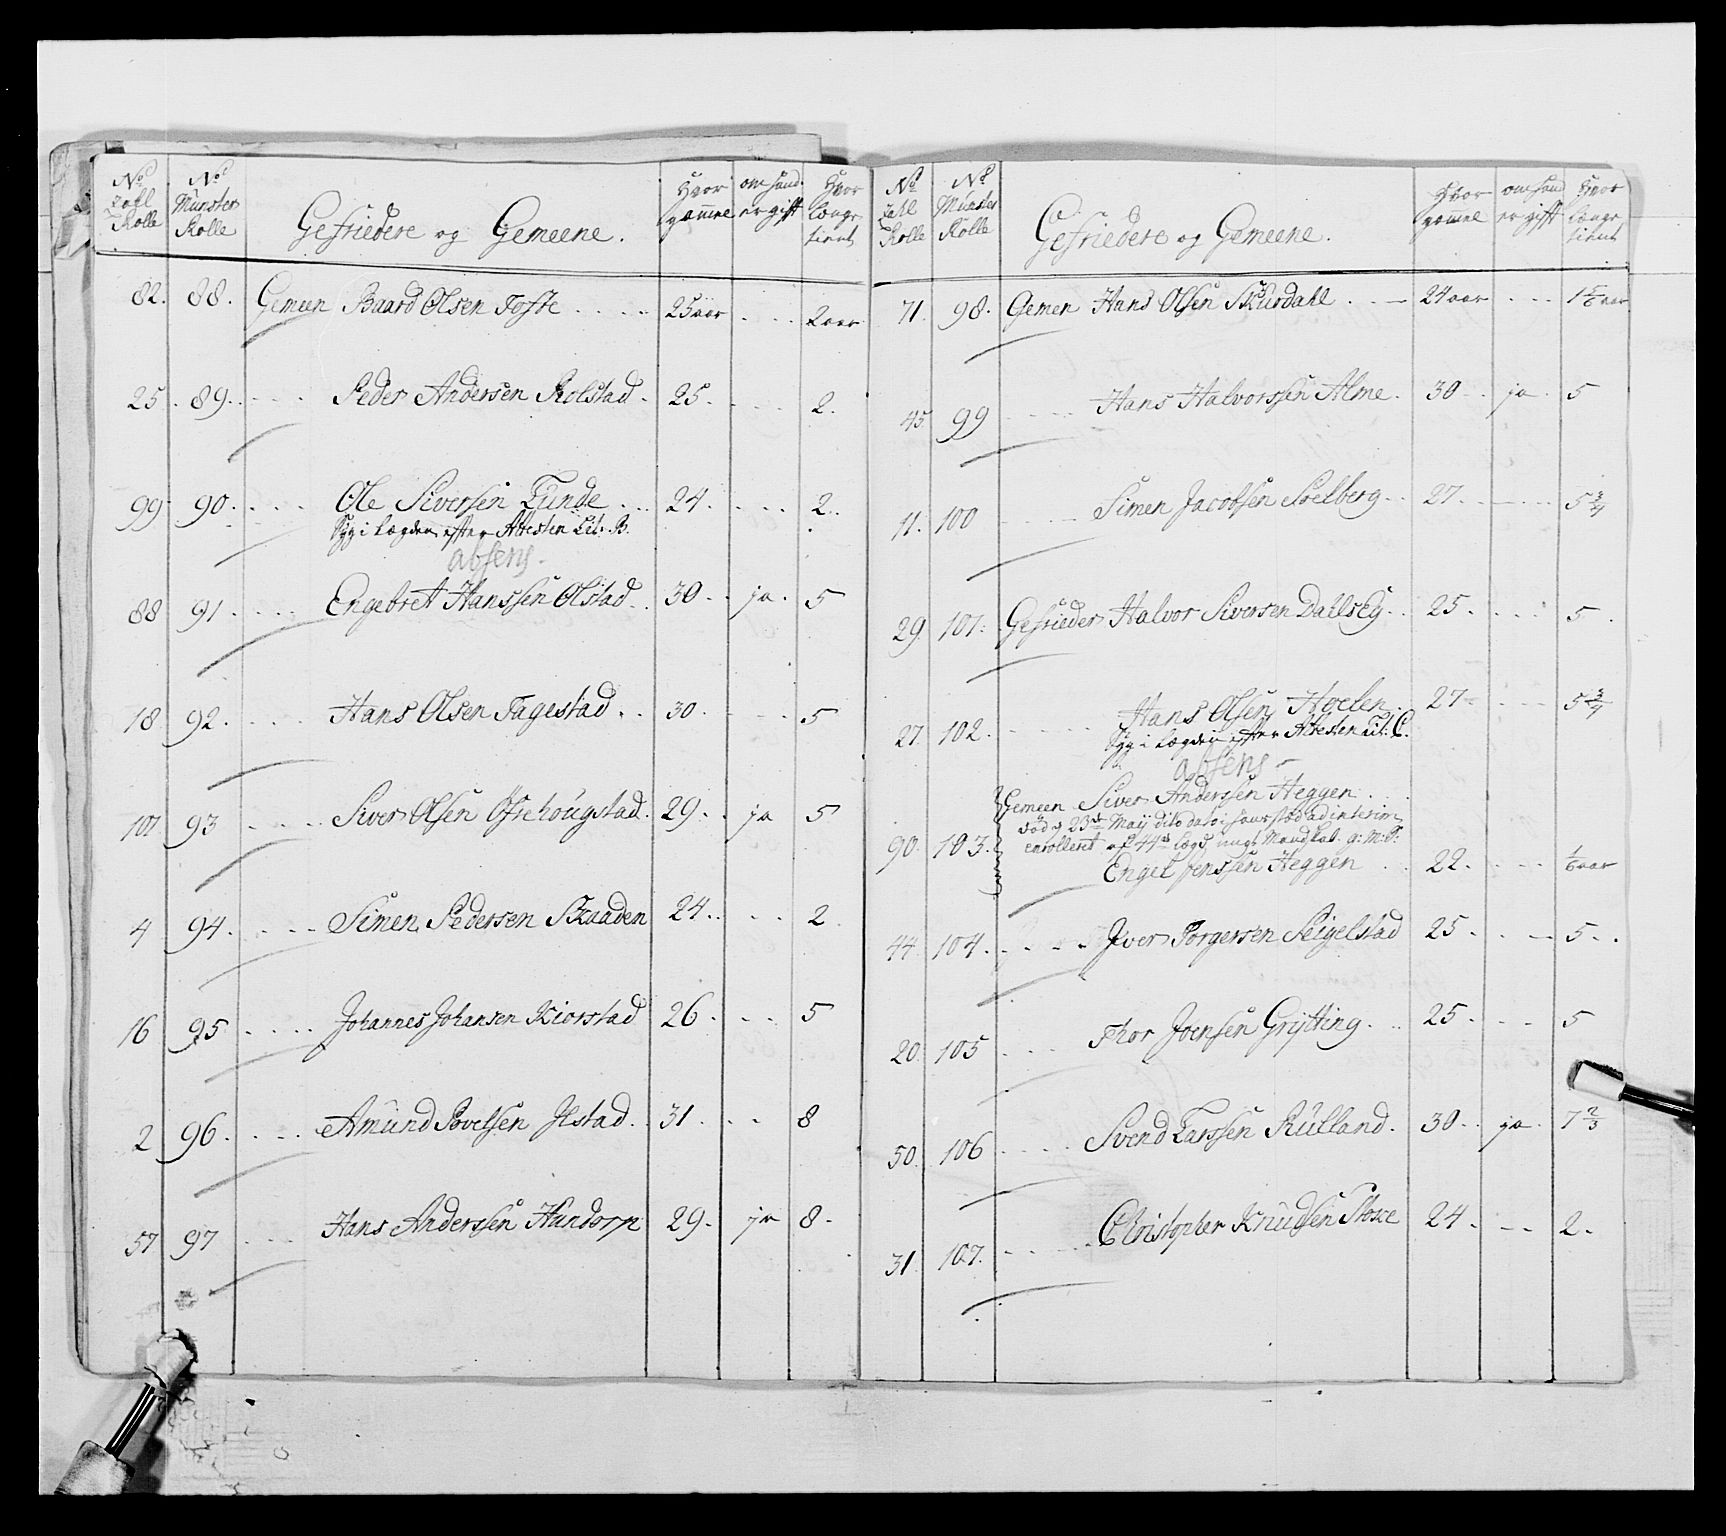 No Zahl Rolle | No Munster Rolle | Gefriedere og Gemeene. | Hvor gamme | om hand er gift | Hvor længe tient
82. 88. Gemeen Baard Olsen Tofte 25 aar 2 aar
25. 89. Peder Andersen Rolstad. 25. 2.
99 90. Ole Siversen Lunde 24. 2.
Syg i Lægden efter Attesten Lit: B.
absens.
88 91. Engebret Hanssen Olstad 30. ja. 5
18 92. Hans Olsen Fagestad 30. 5
107 93 Siver Olsen 29. ja 5
4 94. Simen Pedersen Braaden 24. 2
16 95 Johannes Johansen Kiorstad 26. 5
2 96. Amund Povelsen Ilstad. 31. 8
57 97 Hans Anderssen Hundorp 29. ja 8.
No Zahl Rolle | No Munster Rolle | Gefriedere og Gemeene. | Hvor gamme | om hand er gifft | Hvor længe tient
71. 98. Gemen Hans Olsen Skurdahl 24 aar 1 5/6 aar
45. 99 Hans Halvorssen Alme. 30 ja. 5
11. 100 Simen Jacobsen Solberg 27. 5 3/4
29. 101. Gefrieder Halvor Siversen Dahlseg 25. 5
27. 102. Hans Olsen Hoelen. 27 5 3/4
Syg i Lægden efter Attesten Lit: C.
absens
Gemeen Siver Anderssen Heggen
død 23de Maij dito dato i hans sted ad interim
90. 103. enrolleret af 44de Lægd ungt Mandskab
Engel Jenssen Heggen 22. 1/6 aar
44. 104. Iver Torgersen Seigelstad 25. 5.
20. 105 Thor Joensen Grytting. 25. 5
50. 106 Svend Larssen Rulland. 30. ja. 7 2/3
31. 107. Christopher Knudsen 24. 2.